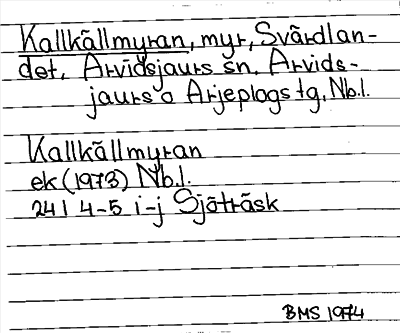 Kallkällmyran, myr, Svärdlan-
det, Arvidsjaurs sn, Arvids-
jaurs o Arjeplogs tg, Nb.l.
Kallkällmyran
ek (1973) Nb.l.
24I 4-5 i-j Sjöträsk
BMS 1974